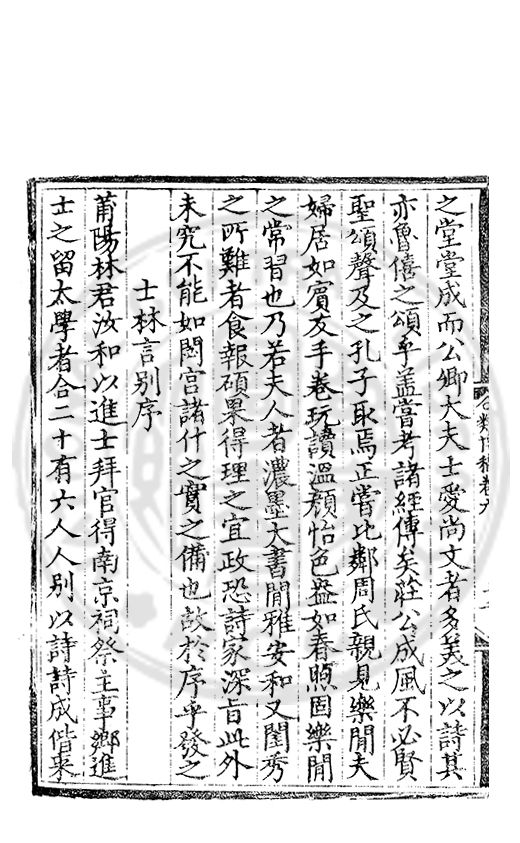 之堂堂成而公卿大夫士愛尚文者多美之以詩其
亦魯僖之頌乎蓋甞考諸經傳矣莊公成風不必賢
聖頌聲及之孔子取焉正嘗比鄰周氏親見樂閒夫
婦居如賓友手卷玩讀溫顔怡色盎如春煦固樂閒
之常習也乃若夫人者濃墨大書閒雅安和又閨秀
之所難者食報碩果得理之宜政恐詩家深旨此外
未究不能如閟宮諸什之實之備也故於序乎發之
士林言别序
莆陽林君汝和以進士拜官得南京祠祭主事鄉進
士之留太學者合二十有六人人别以詩詩成偕來
稿卷九